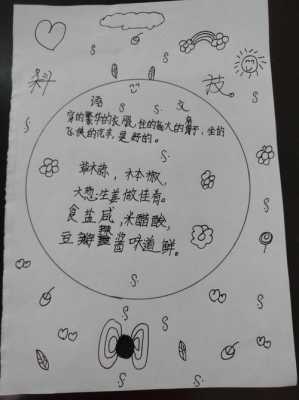 科 技
语 文
穿的繁华的衣服，住的高大的房子，坐的
飞快的汽车，是好的。
草木鱼，木本椒，
大葱生姜做佳肴。
食盐咸，米醋酸，
豆瓣辣酱味道鲜。